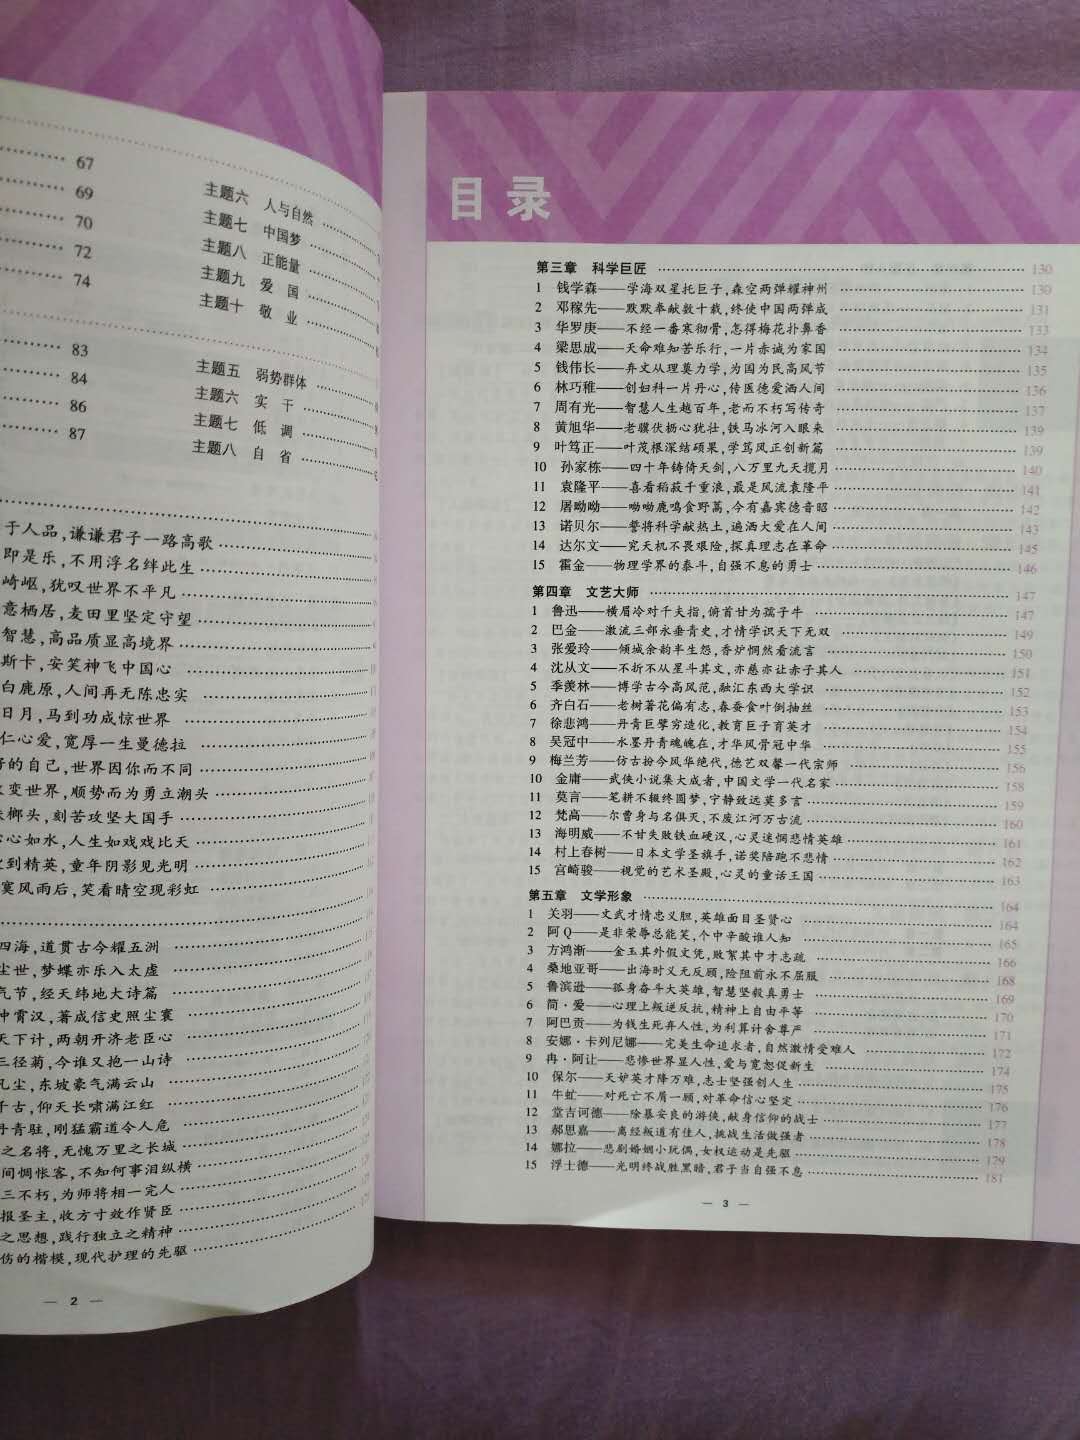 67
69
70
72
74
主题六 人与自然
主题七 中国梦
主题八 正能量
主题九 爱 国
主题十 敬 业
83
84
86
87
主题五 弱势群体
主题六 实 干
主题七 低 调
主题八 自 省
于人品,谦谦君子一路高歌
即是乐,不用浮名绊此生
崎岖,犹叹世界不平凡
意栖居,麦田里坚定守望
智慧,高品质显高境界
斯卡,安笑神飞中国心
白鹿原,人间再无陈忠实
日月,马到功成惊世界
仁心爱,宽厚一生曼德拉
的自己,世界因你而不同
变世界,顺势而为勇立潮头
榔头,刻苦攻坚大国手
心如水,人生如戏戏比天
到精英,童年阴影见光明
寞风雨后,笑看晴空现彩虹
四海,道贯古今耀五洲
尘世,梦蝶亦乐入太虚
气节,经天纬地大诗篇
冲霄汉,著成信史照尘寰
天下计,两朝开济老臣心
三径菊,今谁又抱一山诗
凡尘,东坡豪气满云山
千古,仰天长啸满江红
丹青驻,刚猛霸道令人危
之名将,无愧万里之长城
间惆怅客,不知何事泪纵横
三不朽,为师将相一完人
报圣主,收方寸效作贤臣
之思想,践行独立之精神
伤的楷模,现代护理的先驱
— 2 —
目录
第三章 科学巨匠 130
1 钱学森——学海双星托巨子,森空两弹耀神州 130
2 邓稼先——默默奉献数十载,终使中国两弹成 131
3 华罗庚——不经一番寒彻骨,怎得梅花扑鼻香 133
4 梁思成——天命难知苦乐行,一片赤诚为家国 134
5 钱伟长——弃文从理奠力学,为国为民高风节 135
6 林巧稚——创妇科一片丹心,传医德爱洒人间 136
7 周有光——智慧人生越百年,老而不朽写传奇 137
8 黄旭华——老骥伏枥心犹壮,铁马冰河入眼来 139
9 叶笃正——叶茂根深结硕果,学笃风正创新篇 139
10 孙家栋——四十年铸倚天剑,八万里九天揽月 140
11 袁隆平——喜看稻菽千重浪,最是风流袁隆平 141
12 屠呦呦——呦呦鹿鸣食野蒿,今有嘉宾德音昭 142
13 诺贝尔——誓将科学献热土,遍洒大爱在人间 143
14 达尔文——究天机不畏艰险,探真理志在革命 145
15 霍金——物理学界的泰斗,自强不息的勇士 146
第四章 文艺大师 147
1 鲁迅——横眉冷对千夫指,俯首甘为孺子牛 147
2 巴金——激流三部永垂青史,才情学识天下无双 149
3 张爱玲——倾城余韵半生怨,香炉惘然看流言 150
4 沈从文——不折不从星斗其文,亦慈亦让赤子其人 151
5 季羡林——博学古今高风范,融汇东西大学识 152
6 齐白石——老树著花偏有志,春蚕食叶倒抽丝 153
7 徐悲鸿——丹青巨擘穷造化,教育巨子育英才 154
8 吴冠中——水墨丹青魂魄在,才华风骨冠中华 155
9 梅兰芳——仿古扮今风华绝代,德艺双馨一代宗师 156
10 金庸——武侠小说集大成者,中国文学一代名家 158
11 莫言——笔耕不辍终圆梦,宁静致远莫多言 159
12 梵高——尔曹身与名俱灭,不废江河万古流 160
13 海明威——不甘失败铁血硬汉,心灵迷惘悲情英雄 161
14 村上春树——日本文学圣旗手,诺奖陪跑不悲情 162
15 宫崎骏——视觉的艺术圣殿,心灵的童话王国 163
第五章 文学形象 164
1 关羽——文武才情忠义胆,英雄面目圣贤心 164
2 阿Q——是非荣辱总能笑,个中辛酸谁人知 165
3 方鸿渐——金玉其外假文凭,败絮其中才志疏 166
4 桑地亚哥——出海时义无反顾,险阻前永不屈服 168
5 鲁滨逊——孤身奋斗大英雄,智慧坚毅真勇士 169
6 简·爱——心理上叛逆反抗,精神上自由平等 170
7 阿巴贡——为钱生死弃人性,为利算计舍尊严 171
8 安娜·卡列尼娜——完美生命追求者,自然激情受难人 172
9 冉·阿让——悲惨世界显人性,爱与宽恕促新生 174
10 保尔——天妒英才降万难,志士坚强创人生 175
11 牛虻——对死亡不屑一顾,对革命信心坚定 176
12 堂吉诃德——除暴安良的游侠,献身信仰的战士 177
13 郝思嘉——离经叛道有佳人,挑战生活做强者 178
14 娜拉——悲剧婚姻小玩偶,女权运动是先驱 179
15 浮士德——光明终战胜黑暗,君子当自强不息 181
— 3 —